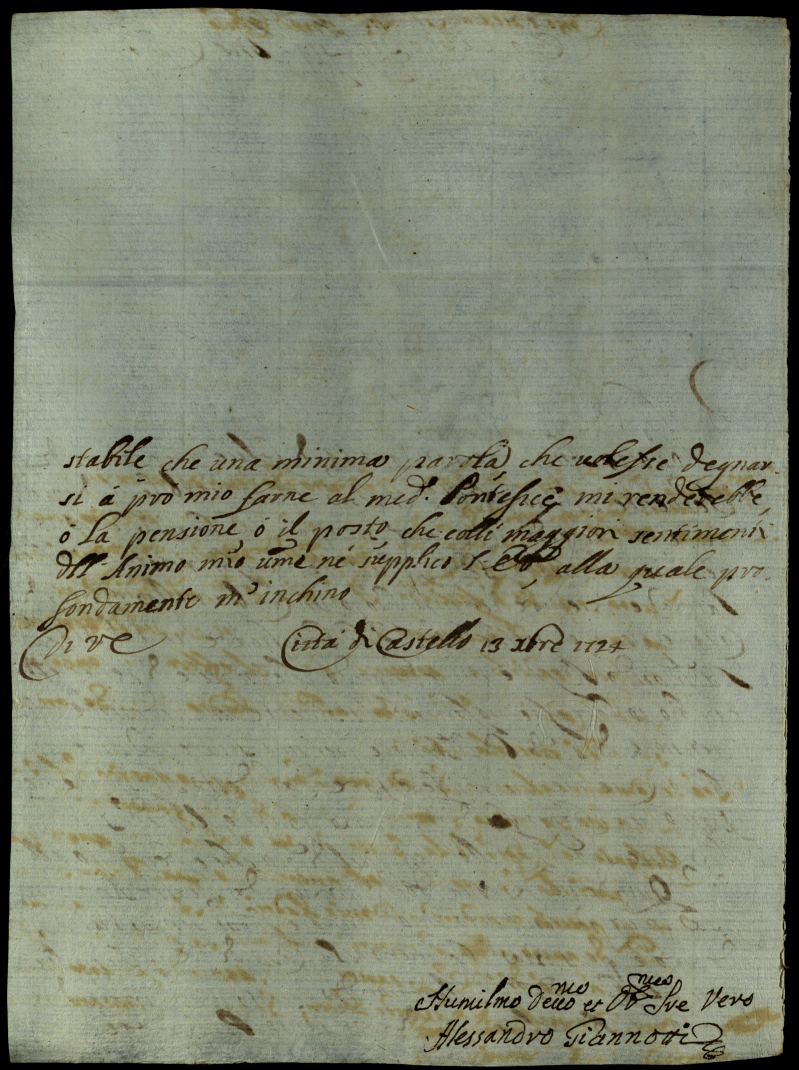 stabile che una minima parola, che volesse degnar-
si á pró mio farne al med.º Pontefice, mi renderebbe,
ó la pensione, ó il posto, che colli maggiori sentimenti
dell'Animo mio, ume né supplico, alla quale pro-
fondamente m'inchino
Di VE Cittá di Castello 13 xbre 1724
Humilmo Devmo et Obmo Sre Vero
Alessandro Giannotti